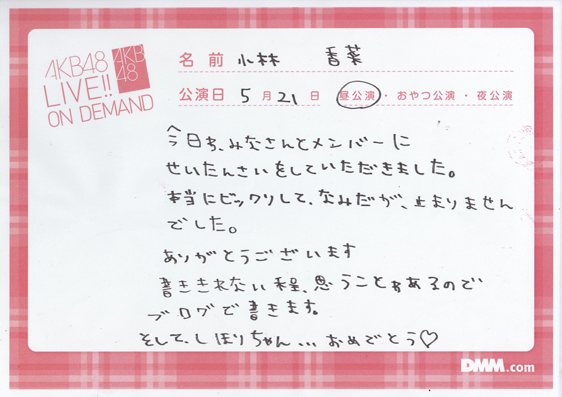 AKB48
LIVE!!
ON DEMAND
AKB
48
名前 小林 香菜
公演日 5月21日 昼公演・おやつ公演・夜公演
今日も、みなさんとメンバーに
せいたんさいをしていただきました。
本当にビックリして、なみだが、止まりません
でした。
ありがとうございます
書ききれない程、思うこともあるので
ブログで書きます。
そして、しほりちゃん...おめでとう♡
DMM.com